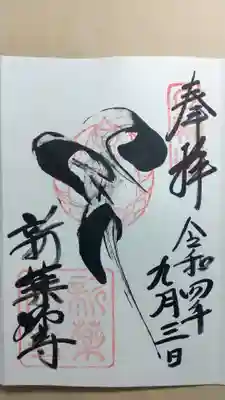 奉拝
令和四年
九月三日
新薬师寺